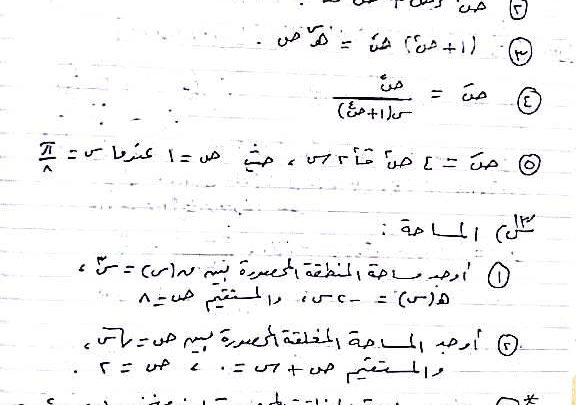 ③ (١ + ص٢) صَ = هـ^س ص .
④ صَ = ص٢ / س(١ + ص٤)
⑤ صَ = ٤ ص٢ قا٢ ٢س ، حيث ص = ١ عندما س = π/٨
س٣) المساحة :
① أوجد مساحة المنطقة المحصورة بين ق(س) = س٣ ،
هـ(س) = -٢س ، والمستقيم ص = ٨
② أوجد المساحة المغلقة المحصورة بين ص = √س ،
والمستقيم ص + س = ٠ ، ص = ٢ .